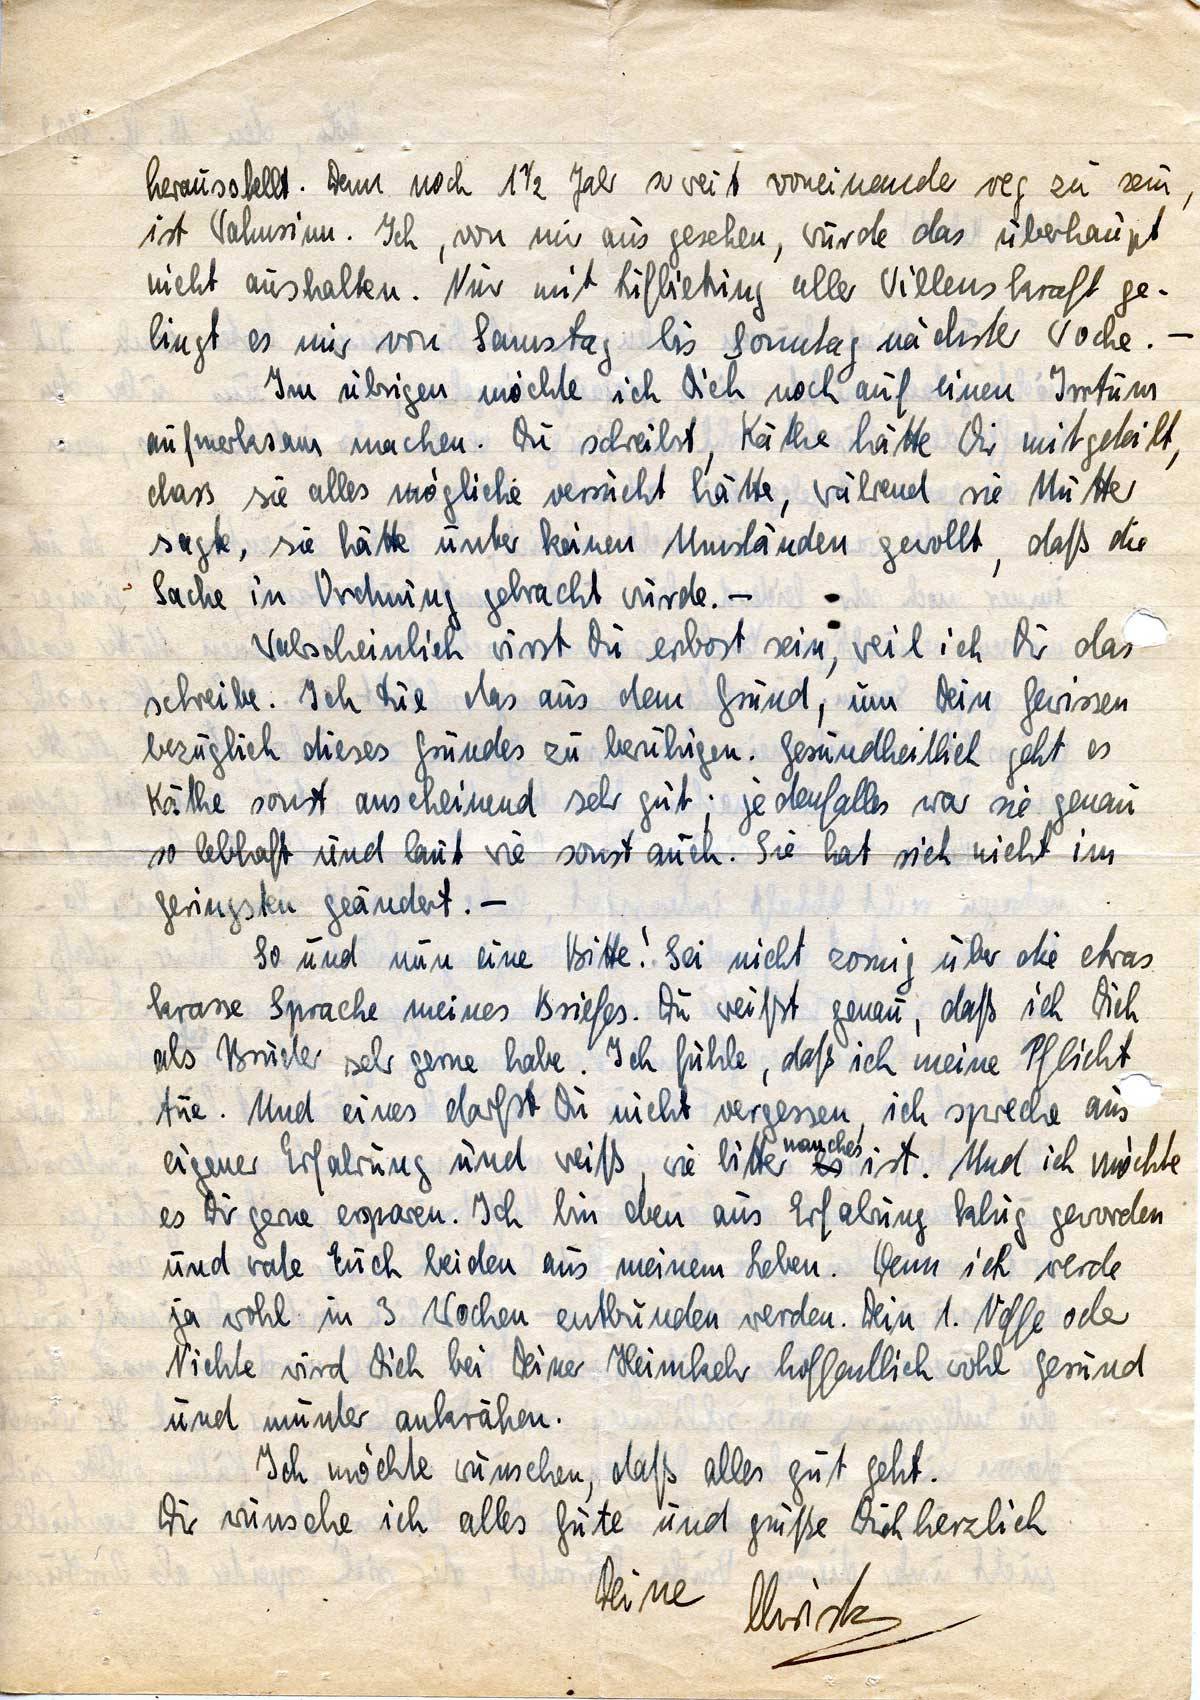 herausstellt. Denn noch 1 1/2 Jahr so weit voneinander weg zu sein,
ist Wahnsinn. Ich, von mir aus gesehen, würde das überhaupt
nicht aushalten. Nur mit aller Willenskraft ge-
lingt es mir von Samstag bis Sonntag nächster Woche. —
Im übrigen möchte ich Dich noch auf einen Irrtum
aufmerksam machen. Du schreibst, Käthe hätte Dir mitgeteilt,
dass sie alles mögliche versucht hätte, während sie Mutter
sagte, sie hätte unter keinen Umständen gewollt, daß die
Sache in Ordnung gebracht würde. —
Wahrscheinlich wirst Du erbost sein, weil ich Dir das
schreibe. Ich tue das aus dem Grund, um Dein Gewissen
bezüglich dieses Grundes zu beruhigen. Gesundheitlich geht es
Käthe sonst anscheinend sehr gut; jedenfalles war sie genau
so lebhaft und laut wie sonst auch. Sie hat sich nicht im
geringsten geändert. —
So und nun eine Bitte! Sei nicht zornig über die etwas
krasse Sprache meines Briefes. Du weißt genau, daß ich Dich
als Bruder sehr gerne habe. Ich fühle, daß ich meine Pflicht
tue. Und eines darfst Du nicht vergessen, ich spreche aus
eigener Erfahrung und weiß, wie bitter manches ist. Und ich möchte
es Dir gerne ersparen. Ich bin eben aus Erfahrung klug geworden
und rate Euch beiden aus meinem Leben. Denn ich werde
ja wohl in 3 Wochen entbunden werden. Dein 1. Neffe oder
Nichte wird Dich bei Deiner Heimkehr hoffentlich wohl gesund
und munter ankrähen.
Ich möchte wünschen, daß alles gut geht.
Dir wünsche ich alles Gute und grüße Dich herzlich
Deine